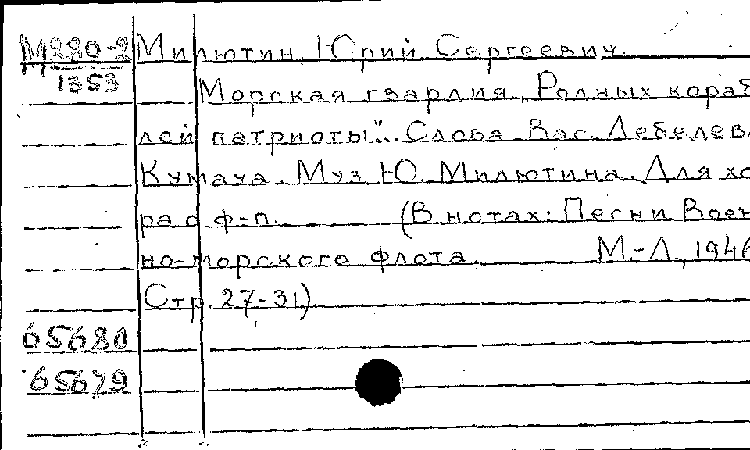 М280-2 Милютин, Юрий Сергеевич.
1353 Морская гвардия. „Родных кораб
лей патриоты"... Слова Вас. Лебедева-
Кумача. Муз Ю. Милютина. Для хо
ра с ф-п. (В нотах: Песни Воен
но-морского флота. М.-Л., 1946
Стр. 27-31)
65680
65679